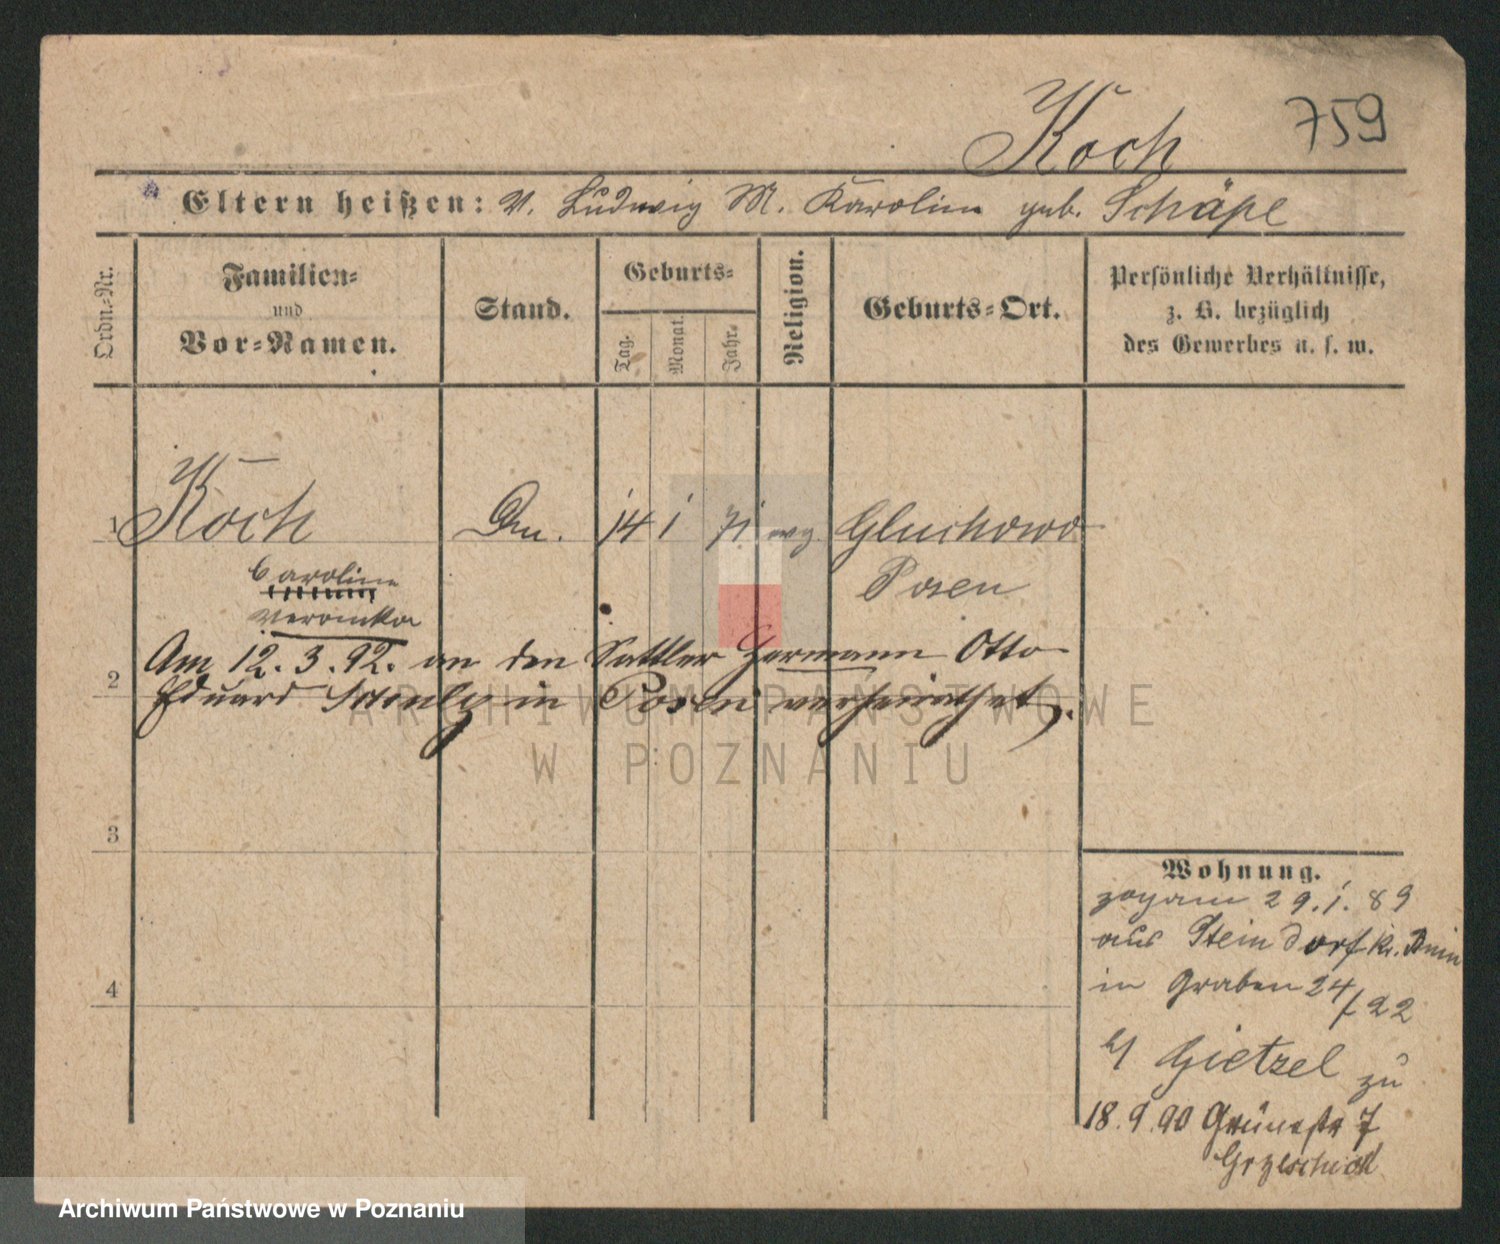 Koch
759
Eltern heißen: V. Ludwig M. Karolin geb. Schäpe
Ordn.-Nr.
Familien-
und
Vor-Namen.
Stand.
Geburts-
Tag.
Monat.
Jahr.
Religion.
Geburts-Ort.
Persönliche Verhältnisse,
z. B. bezüglich
des Gewerbes u. s. w.
1 Koch 14 1 71 evg. Gluchowo
Posen
Caroline
Veronika
Am 12. 3. 92. an den Sattler Hermann Otto
2
Eduard in Posen verheirathet.
3
4
Wohnung.
zog am 29. 1. 89
aus Steindorf Kr.
in Graben 24/22
b/ Gietzel zu
18. 9. 90 Grünestr 7
ARCHIWUM PAŃSTWOWE
W POZNANIU
Archiwum Państwowe w Poznaniu